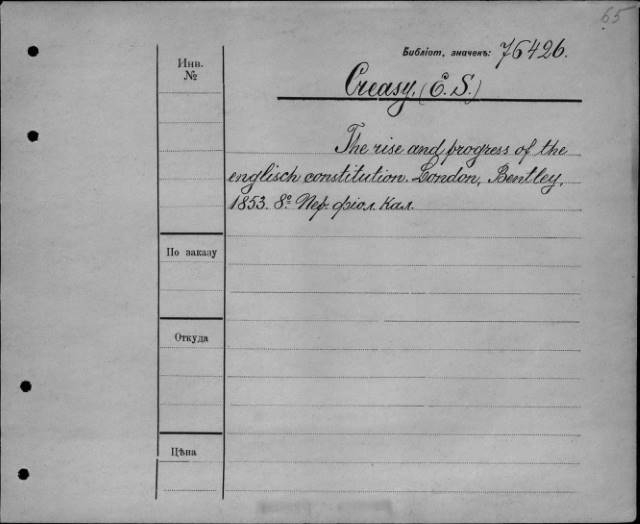 65
Библіот. значекъ: 76426.
Инв.
№
Creasy, (E. S.)
The rise and progress of the
englisch constitution. London, Bentley,
1853. 8º. Пер. фіол. кал.
По заказу
Откуда
Цѣна